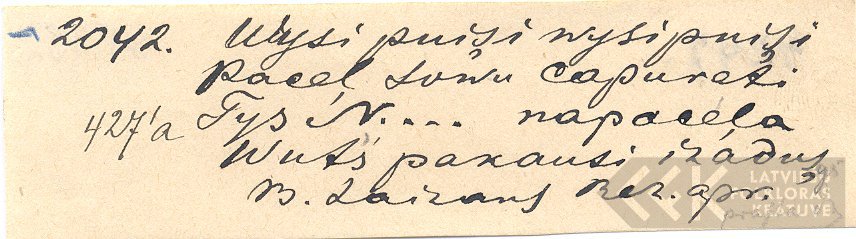 2042. Wysi puiši wysi puiši
Pacel sowu capureti
427'a Tys N.... napacela
Wuts pakausi izadus
B. Laizans Rez. apr.
LATVIEŠU
FOLKLORAS
KRĀTUVE